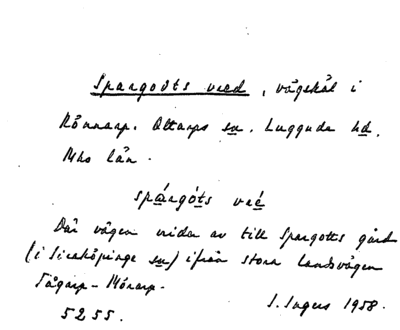 Spargotts vred, vägskäl i
Rönnarp. Ottarps sn. Luggude hd.
Mhs län.
spárgóts vré
Där vägen vrider av till Spargotts gård
(i Sireköpinge sn) ifrån stora landsvägen
Tågarp – Mörarp.
S. Ingers 1958.
5255.